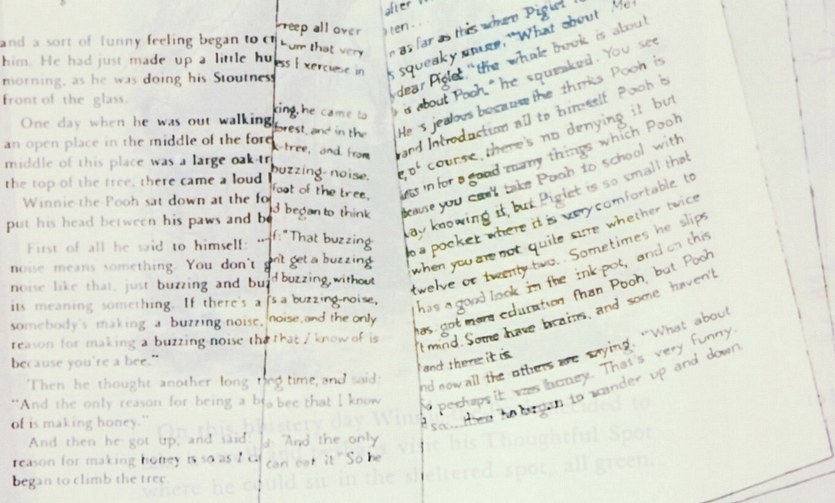 and a sort of funny feeling began to creep all over
him. He had just made up a little hum that very
morning, as he was doing his Stoutness Exercise in
front of the glass.
One day when he was out walking, he came to
an open place in the middle of the forest, and in the
middle of this place was a large oak-tree, and from
the top of the tree, there came a loud buzzing-noise.
Winnie-the-Pooh sat down at the foot of the tree,
put his head between his paws and began to think
First of all he said to himself: "That buzzing
noise means something. You don't get a buzzing
noise like that, just buzzing and buzzing, without
its meaning something. If there's a buzzing-noise,
somebody's making a buzzing noise, and the only
reason for making a buzzing noise that I know of is
because you're a bee."
Then he thought another long time, and said:
"And the only reason for being a bee that I know
of is making honey."
And then he got up, and said: "And the only
reason for making honey is so as I can eat it." So he
began to climb the tree
after
ten..
as far as this when Piglet
squeaky "What about Me?
dear Piglet," the whole book is about
is about Pooh," he squeaked. You see
He's jealous because he thinks Pooh is
Grand Introduction all to himself Pooh is
of course, there's no denying it but
in for a good many things which Pooh
because you can't take Pooh to school with
knowing it, but Piglet is so small that
a pocket where it is very comfortable to
when you are not quite sure whether twice
twelve or twenty-two. Sometimes he slips
has a good look in the ink-pot, and in this
has got more education than Pooh, but Pooh
mind. Some have brains, and some haven't
and there it is.
and now all the others are saying, "What about
perhaps it was honey. That's very funny.
so...then he began to wander up and down
On this blustery day Winnie decided to
and visit his Thoughtful Spot
where he could sit in the sheltered spot, all green.